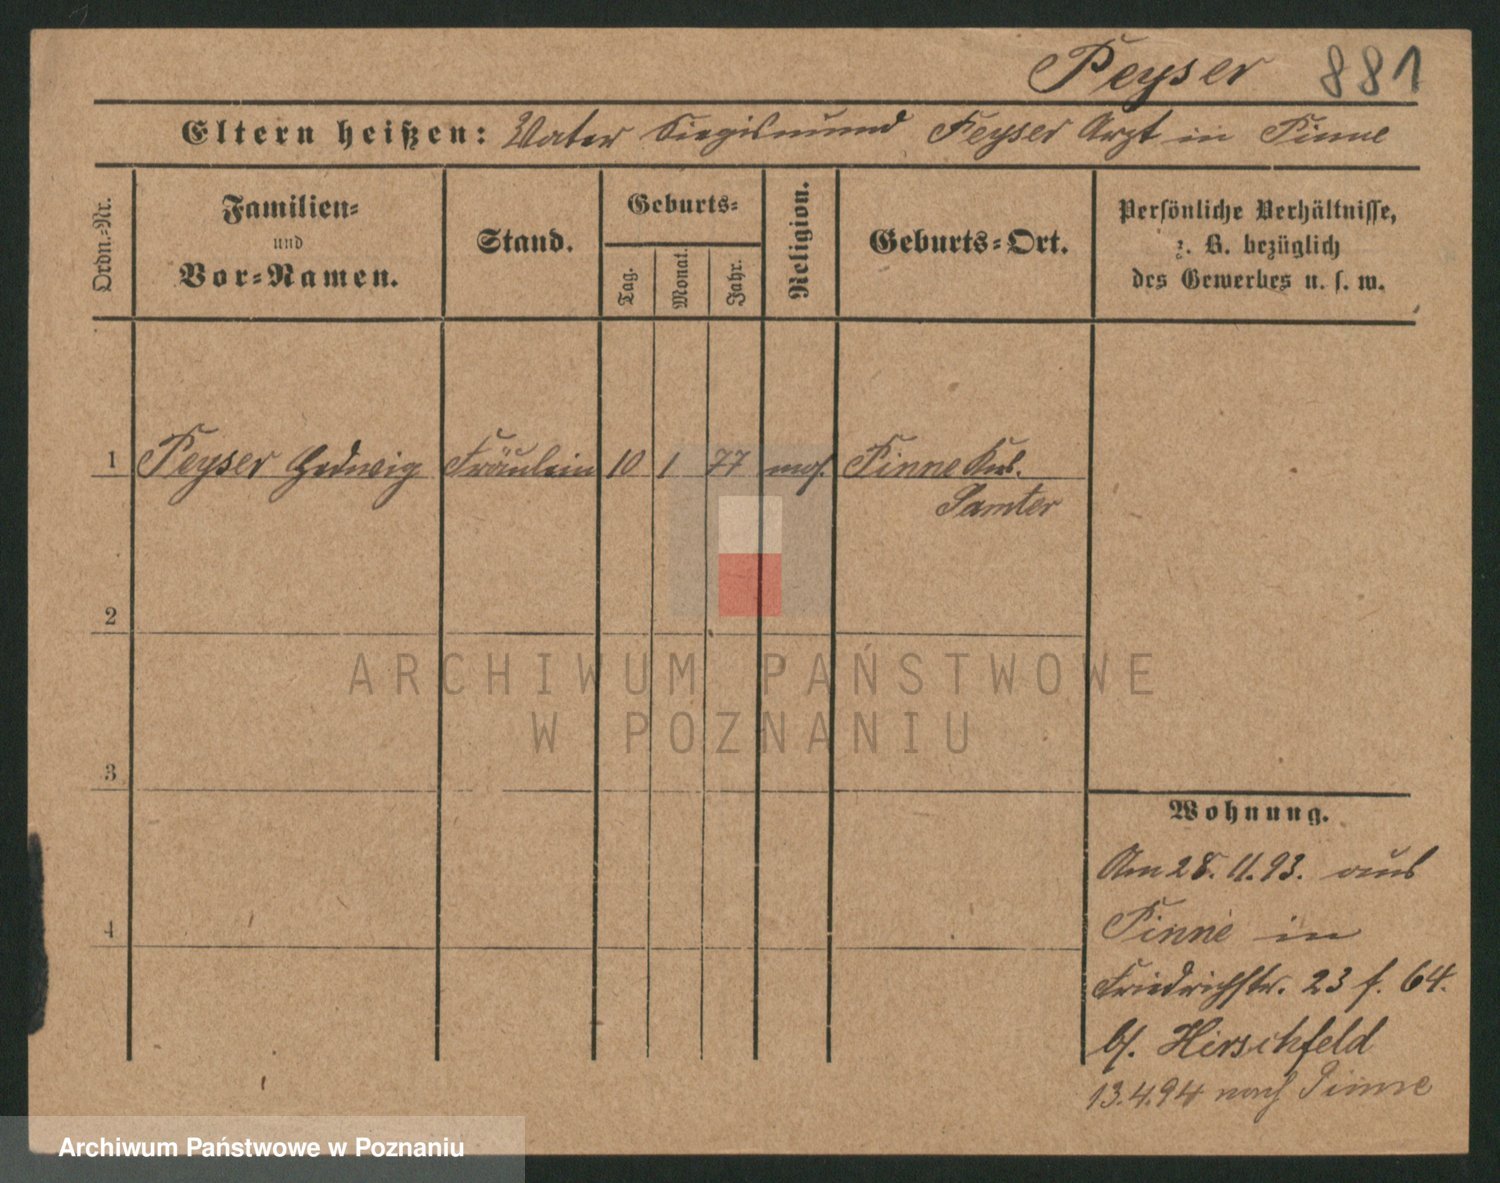 Peyser 881
Eltern heißen: Vater Siegismund Peyser Arzt in Pinne
Ordn.-Nr.
Familien-
und
Vor-Namen.
Stand.
Geburts-
Tag.
Monat.
Jahr.
Religion.
Geburts-Ort.
Persönliche Verhältnisse,
z. B. bezüglich
des Gewerbes u. s. w.
1 Peyser Hedwig Fräulein 10 1 77 mos. Pinne Krs.
Samter
2
3
4
Wohnung.
Am 28. 11. 93. aus
Pinne in
Friedrichstr. 23 f. 64.
b/. Hirschfeld
13.4.94 nach Pinne
ARCHIWUM PAŃSTWOWE
W POZNANIU
Archiwum Państwowe w Poznaniu